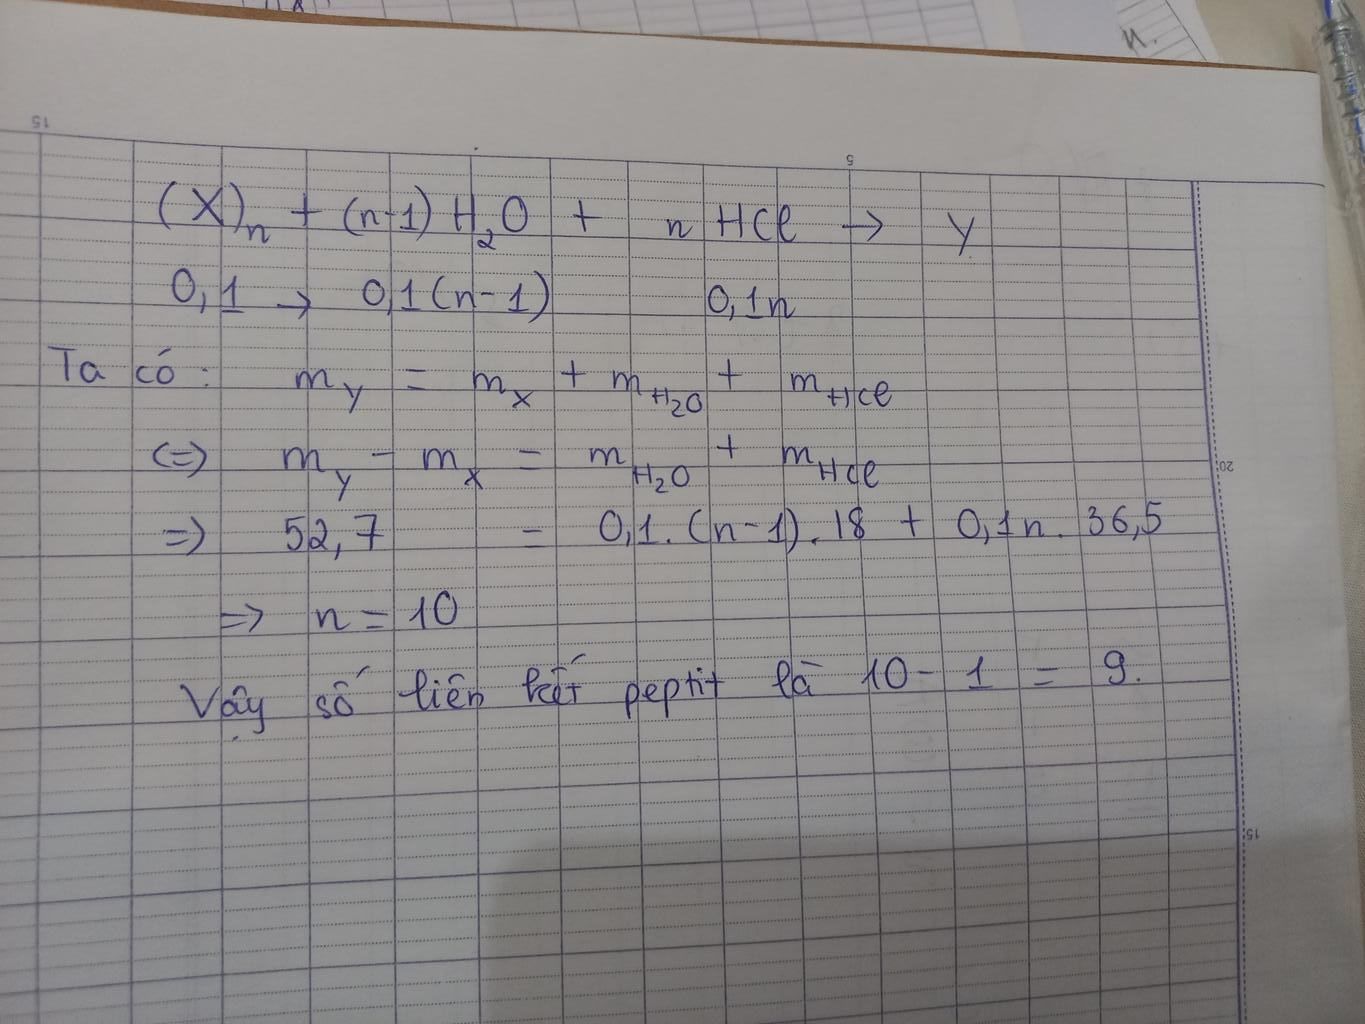 (X)ₙ + (n-1) H₂O + n HCl → Y
0,1 → 0,1(n-1) 0,1n
Ta có: m_Y = m_X + m_H₂O + m_HCl
(=) m_Y - m_X = m_H₂O + m_HCl
=) 52,7 = 0,1.(n-1).18 + 0,1n.36,5
=> n = 10
Vậy số liên kết peptit là 10 - 1 = 9.
15
5
20
15